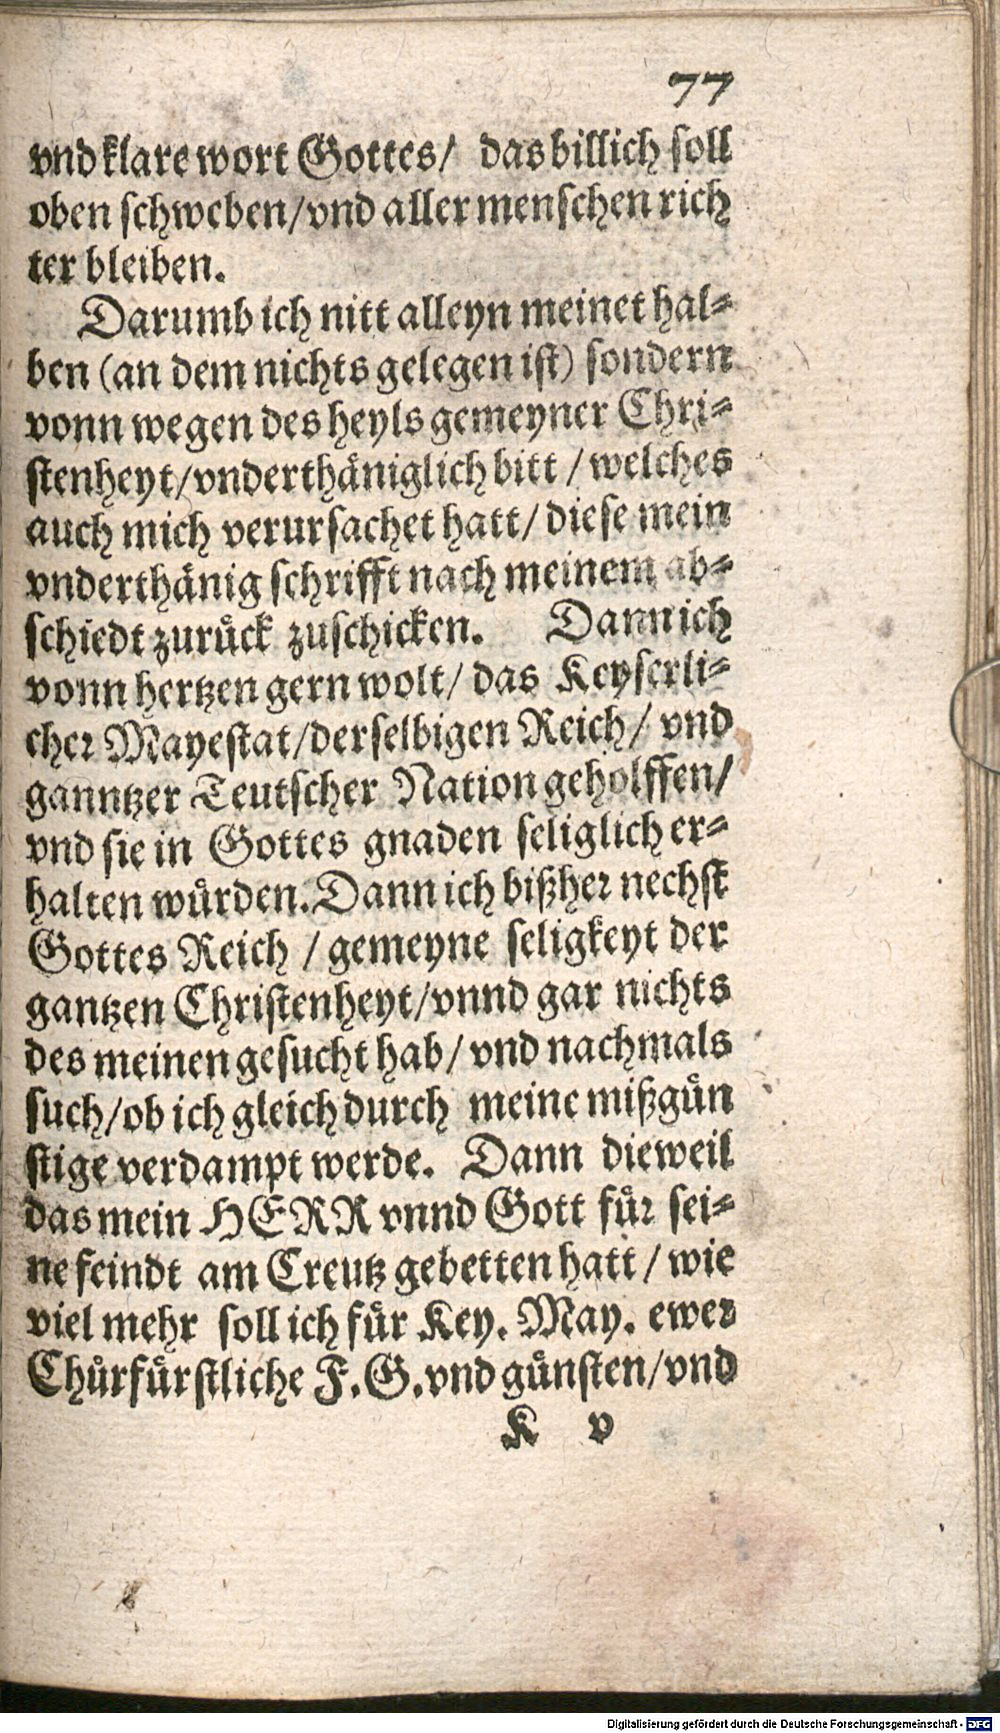 77
vnd klare wort Gottes/ das billich soll
oben schweben/vnd aller menschen rich
ter bleiben.
Darumb ich nitt alleyn meinet hal-
ben (an dem nichts gelegen ist) sondern
vonn wegen des heyls gemeyner Chri-
stenheyt/vnderthäniglich bitt / welches
auch mich verursachet hatt/ diese mein
vnderthänig schrifft nach meinem ab-
schiedt zurück zuschicken. Dann ich
vonn hertzen gern wolt/ das Keyserli-
cher Mayestat/derselbigen Reich/ vnd
ganntzer Teutscher Nation geholffen/
vnd sie in Gottes gnaden seliglich er-
halten würden. Dann ich bißher nechst
Gottes Reich / gemeyne seligkeyt der
gantzen Christenheyt/vnnd gar nichts
des meinen gesucht hab/ vnd nachmals
such/ob ich gleich durch meine mißgün
stige verdampt werde. Dann dieweil
das mein HERR vnnd Gott für sei-
ne feindt am Creutz gebetten hatt / wie
viel mehr soll ich für Key. May. ewer
Chürfürstliche F.G.vnd günsten/vnd
K v
Digitalisierung gefördert durch die Deutsche Forschungsgemeinschaft - DFG